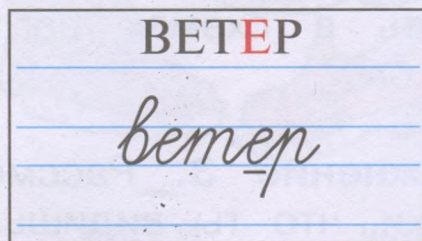 ВЕТЕР
ветер